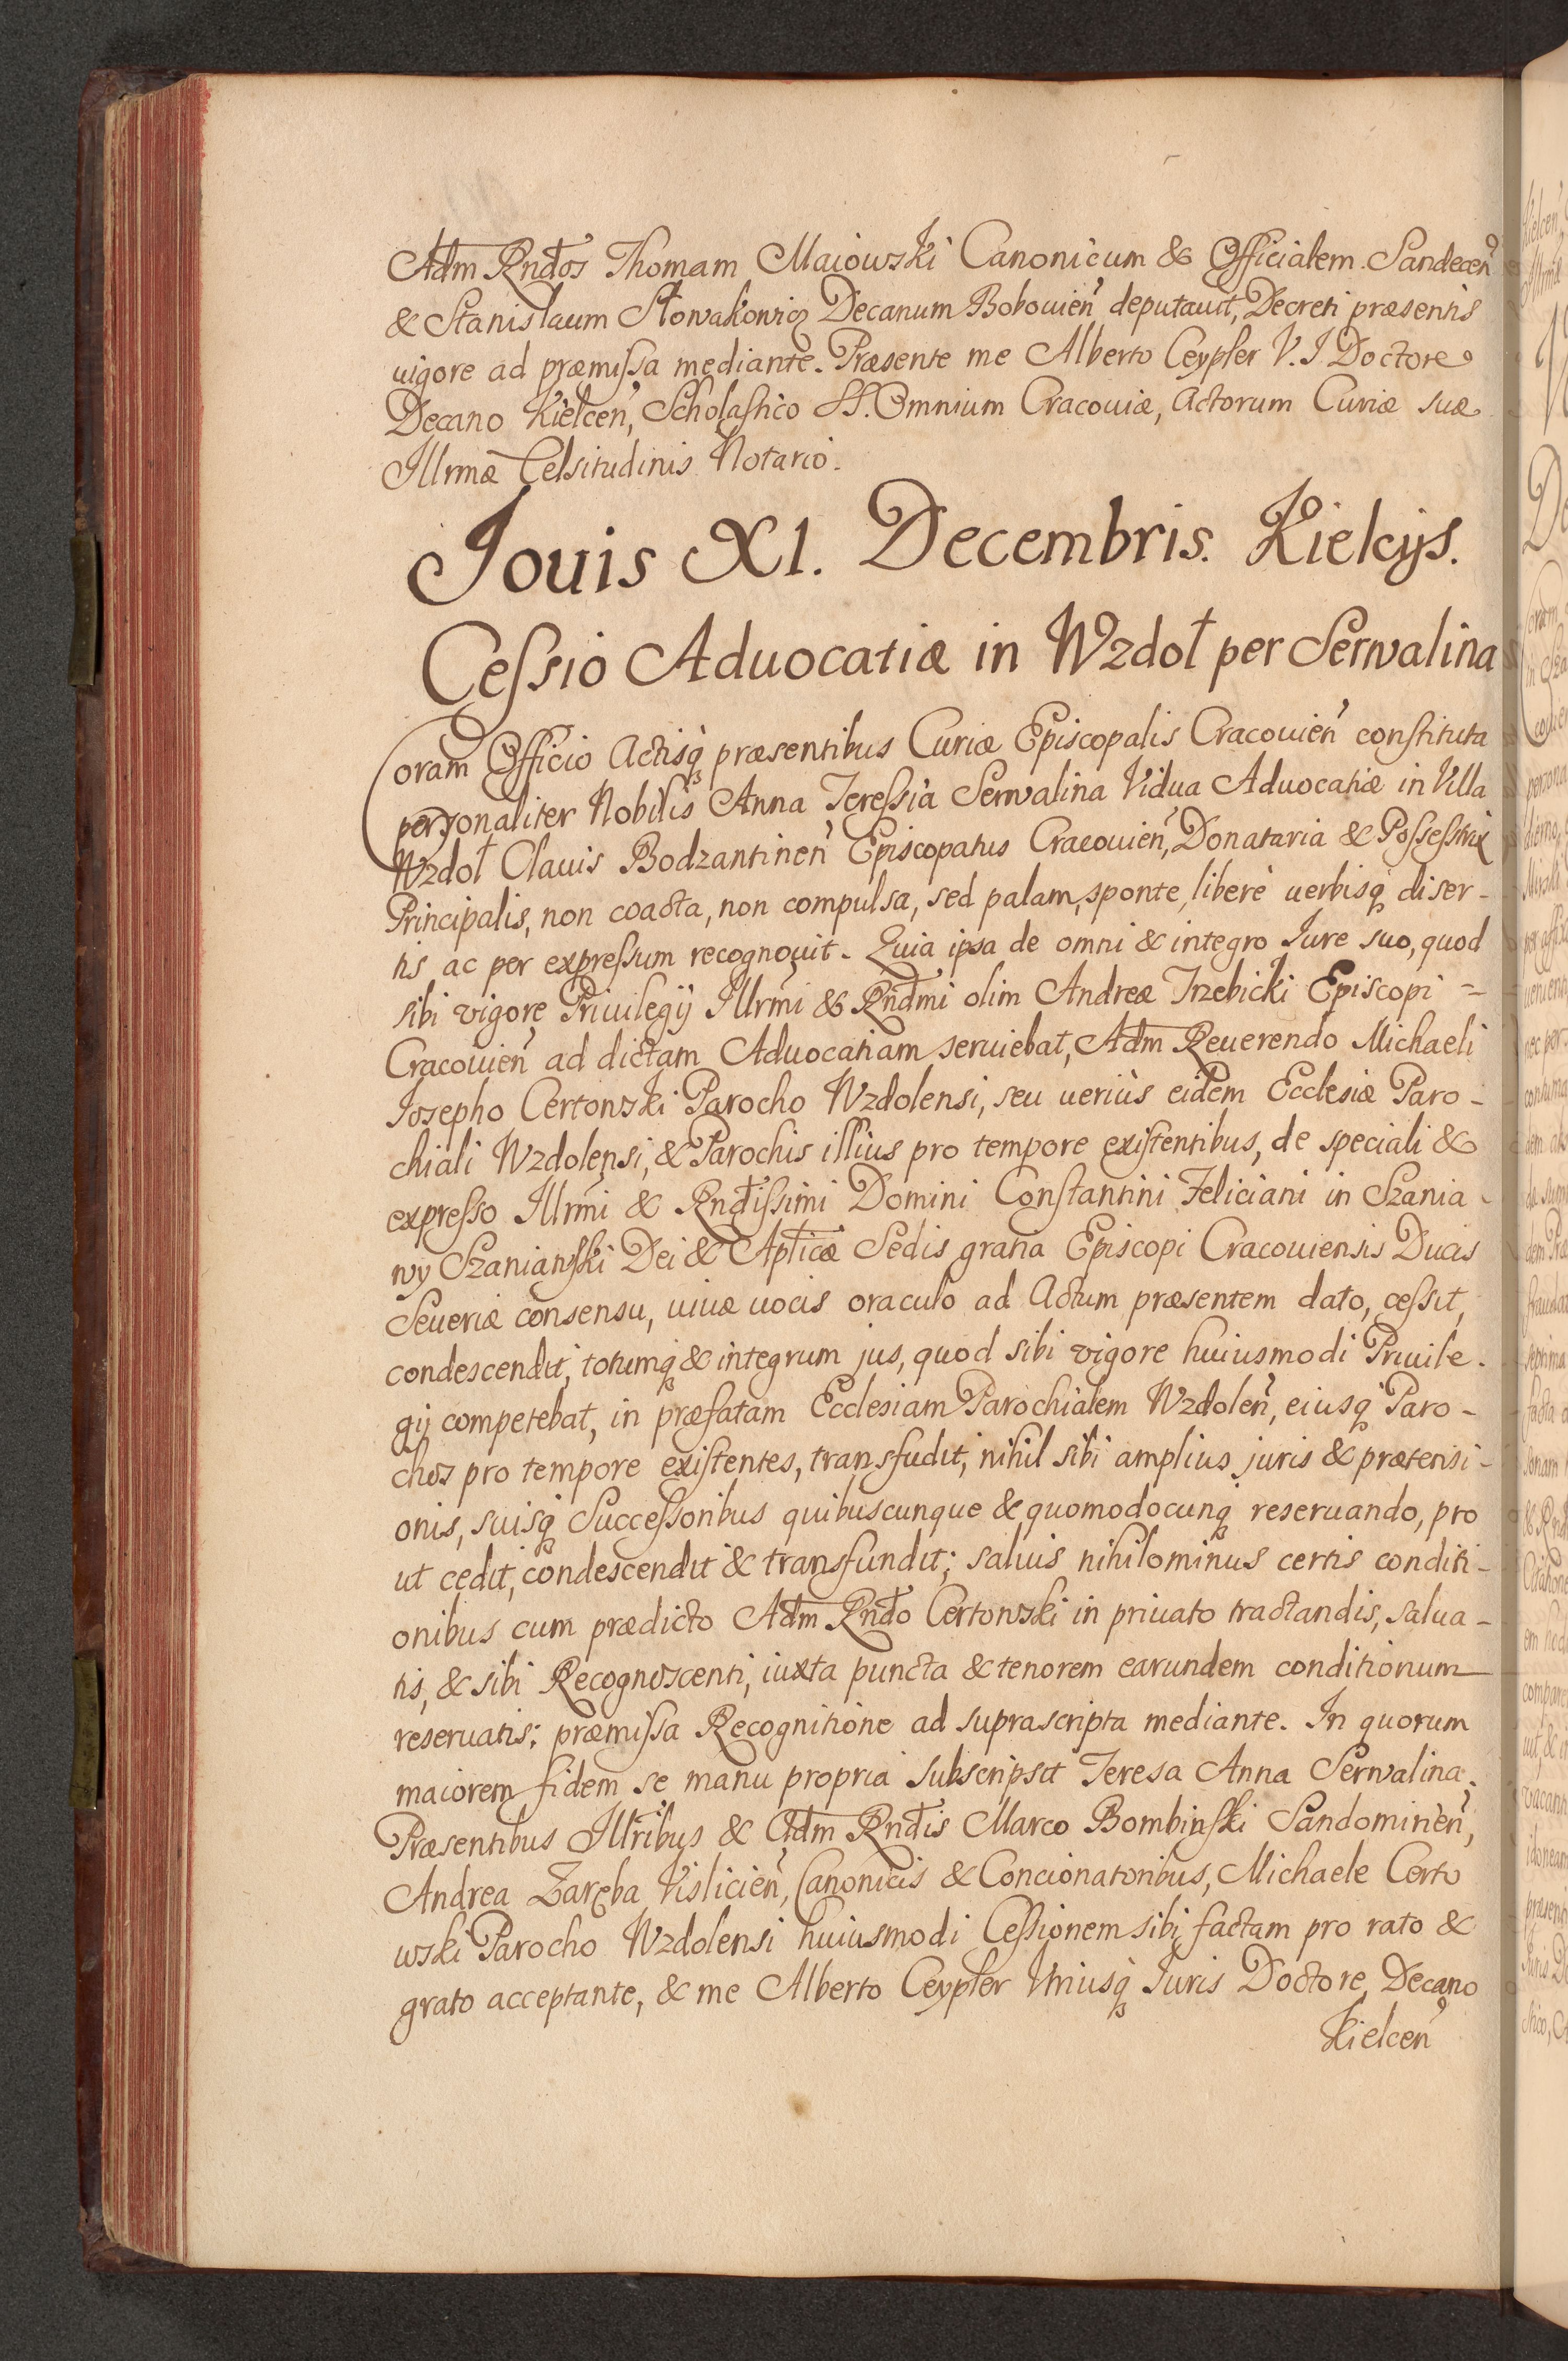 Adm Rndos Thomam Maiowski Canonicum & Officialem Sandecen
& Stanislaum Słowakowicz Decanum Bobouien deputauit, Decreti præsentis
uigore ad præmissa mediante. Præsente me Alberto Ceypler V. I. Doctore
Decano Kielcen, Scholastico SS. Omnium Cracouiæ, Actorum Curiæ suæ
Illrmæ Celsitudinis Notario.
Jouis XI. Decembris. Kielcijs.
Cessio Aduocatiæ in Wzdoł per Serwalina
Coram Officio Actisq præsentibus Curiæ Episcopalis Cracouien constituta
personaliter Nobilis Anna Teressia Serwalina Vidua Aduocatiæ in Villa
Wzdoł Clauis Bodzantinen Episcopatus Cracouien, Donataria & Possessrix
Principalis, non coacta, non compulsa, sed palam, sponte, liberè uerbisq diser-
tis ac per expressum recognouit. Quia ipsa de omni & integro Iure suo, quod
sibi vigore Priuilegij Illrmi & Rndmi olim Andreæ Trzebicki Episcopi =
Cracouien ad dictam Aduocatiam seruiebat, Adm Reuerendo Michaeli
Iosepho Certowski Parocho Wzdolensi, seu ueriùs eidem Ecclesiæ Paro-
chiali Wzdolensi, & Parochis illius pro tempore existentibus, de speciali &
expresso Illrmi & Rndissimi Domini Constantini Feliciani in Szania-
wy Szaniawski Dei & Aplicæ Sedis gratia Episcopi Cracouiensis Ducis
Seueriæ consensu, uiuæ uocis oraculo ad Actum præsentem dato, cessit,
condescendit, totumq & integrum jus, quod sibi vigore huiusmodi Priuile-
gij competebat, in præfatam Ecclesiam Parochialem Wzdolen, eiusq Paro-
chos pro tempore existentes, transfudit, nihil sibi amplius juris & prætensi-
onis, suisq Successoribus quibuscunque & quomodocunq reseruando, pro
ut cedit, condescendit & transfundit; saluis nihilominus certis conditi-
onibus cum prædicto Adm Rndo Certowski in priuato tractandis, salua-
tis, & sibi Recognoscenti, iuxta puncta & tenorem earundem conditionum
reseruatis: præmissa Recognitione ad suprascripta mediante. In quorum
maiorem fidem se manu propria subscripsit Teresa Anna Serwalina.
Præsentibus Illribus & Adm Rndis Marco Bombinski Sandomirien,
Andrea Zaręba Vislicien, Canonicis & Concionatoribus, Michaele Certo
wski Parocho Wzdolensi huiusmodi Cessionem sibi factam pro rato &
grato acceptante, & me Alberto Ceypler Vtriusq Iuris Doctore, Decano
Kielcen